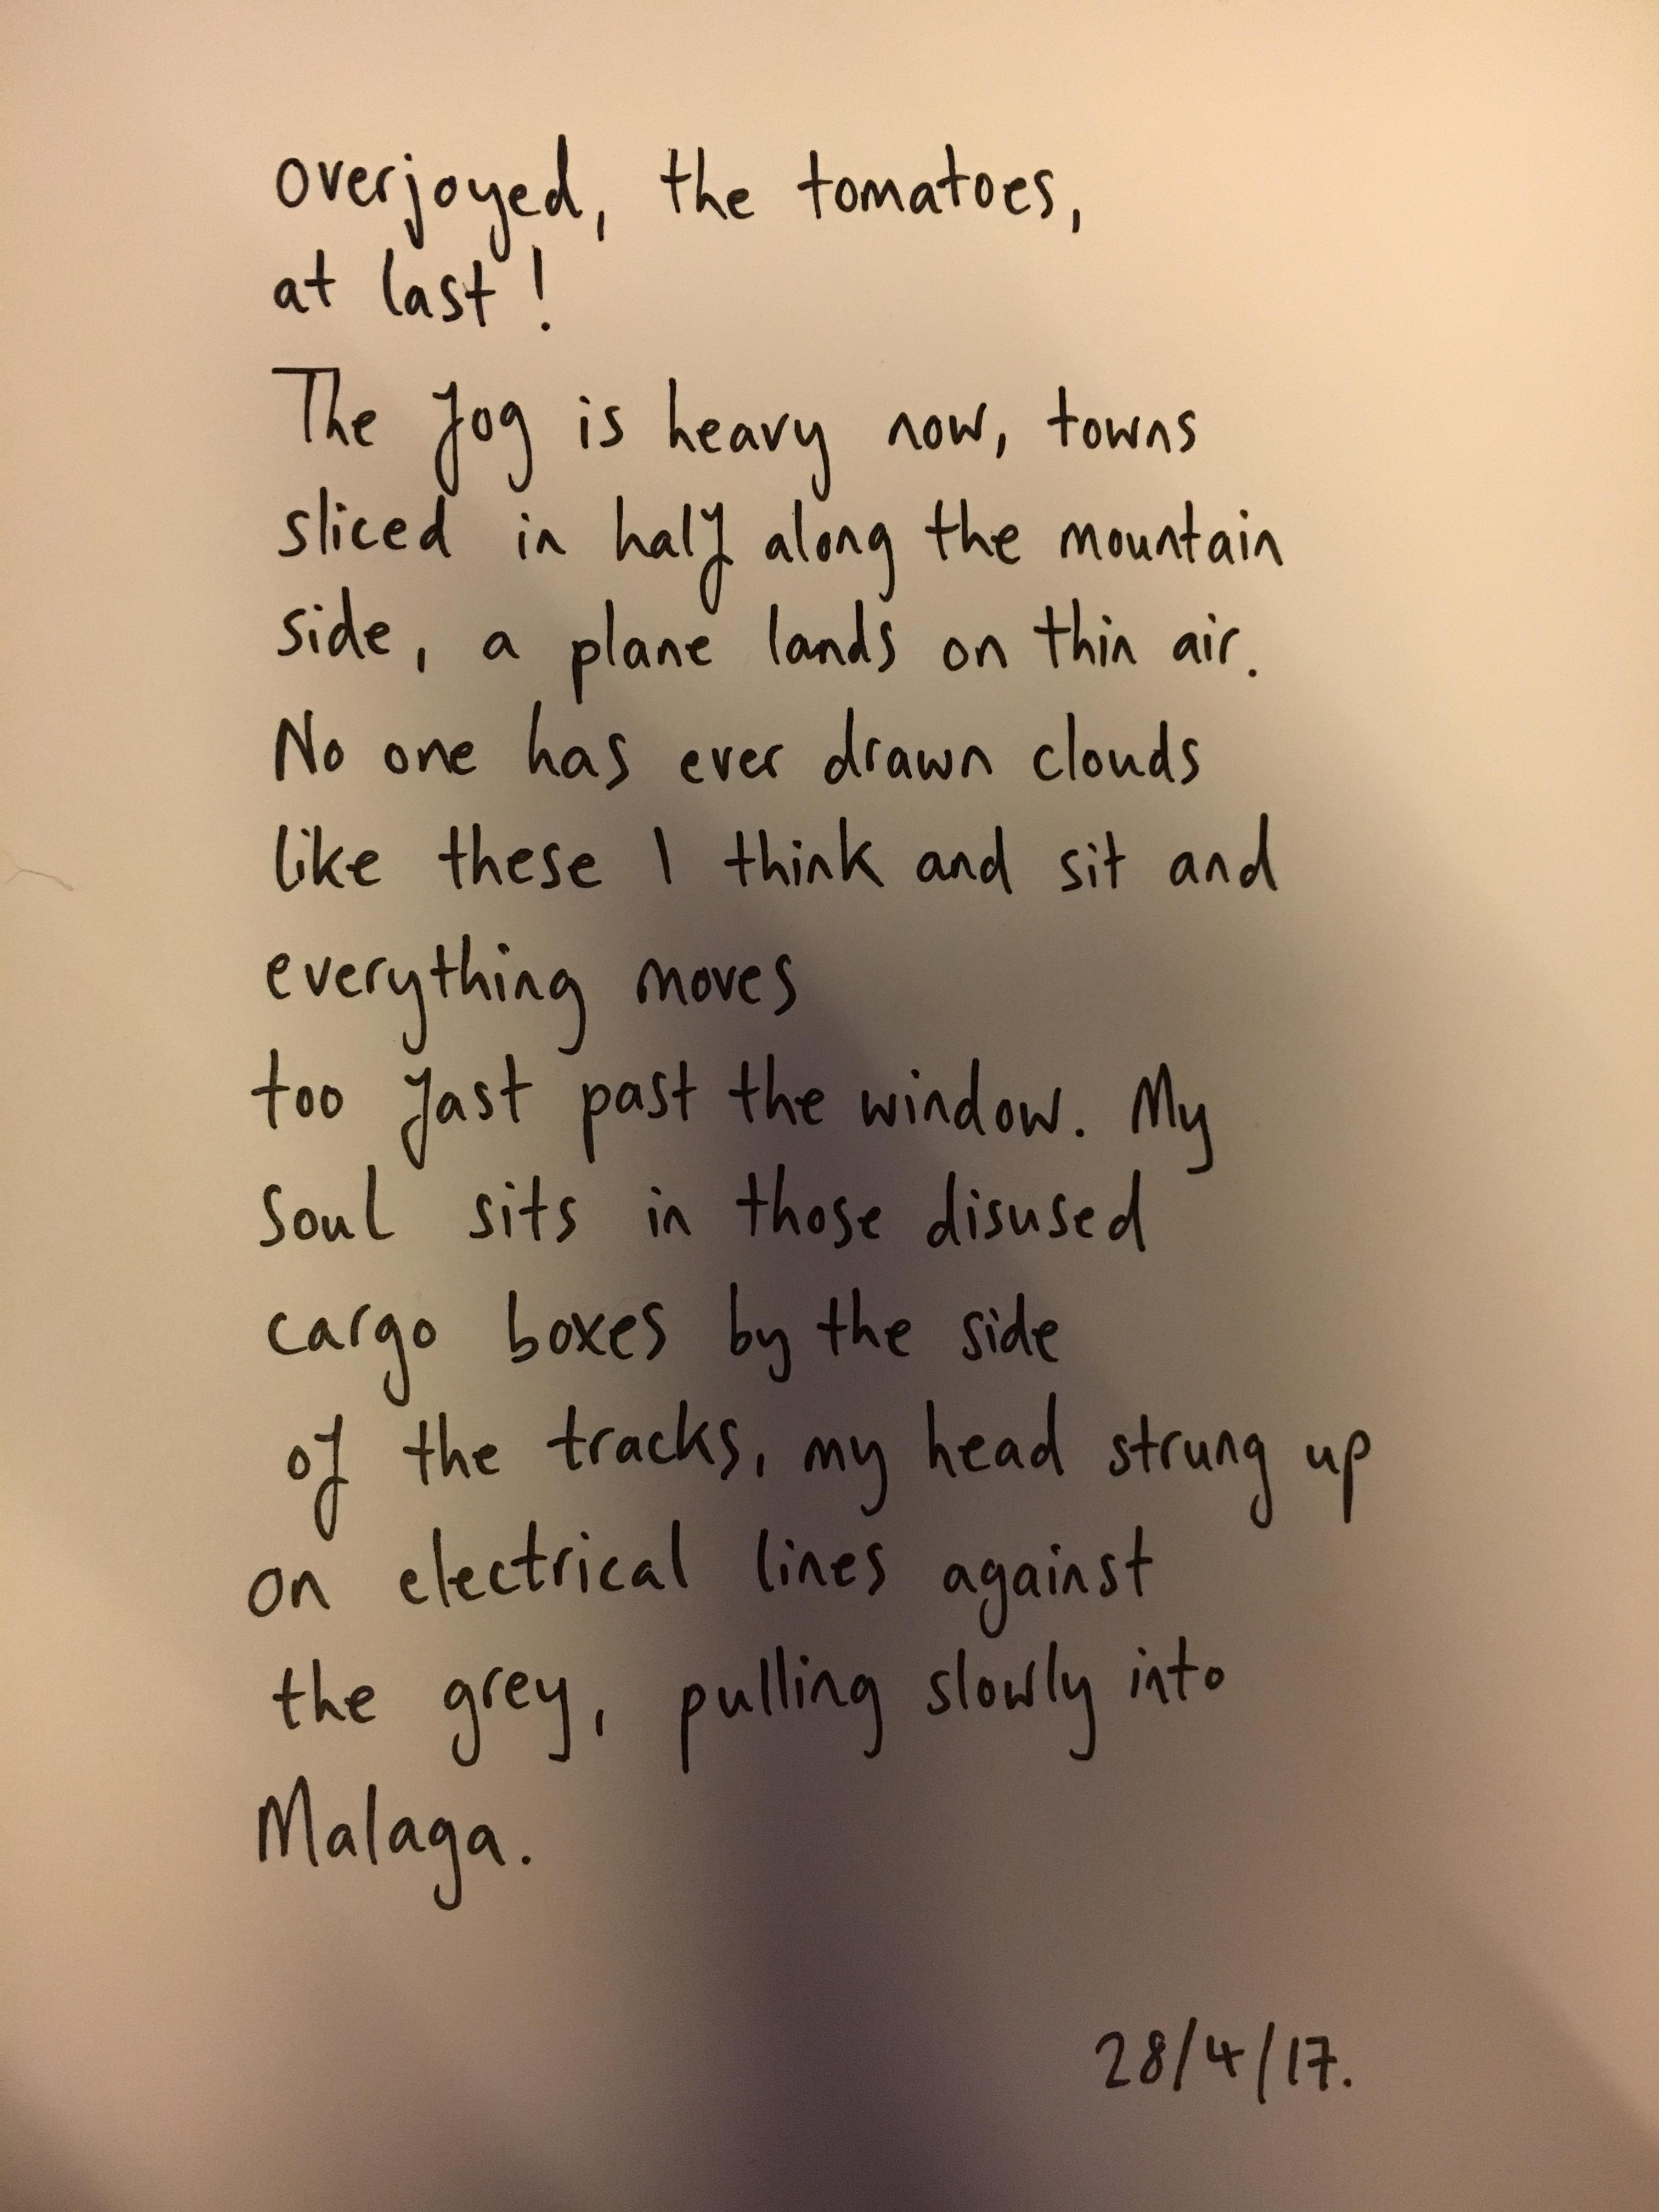 overjoyed, the tomatoes,
at last!
The fog is heavy now, towns
sliced in half along the mountain
side, a plane lands on thin air.
No one has ever drawn clouds
like these I think and sit and
everything moves
too fast past the window. My
soul sits in those disused
cargo boxes by the side
of the tracks, my head strung up
on electrical lines against
the grey, pulling slowly into
Malaga.
28/4/17.